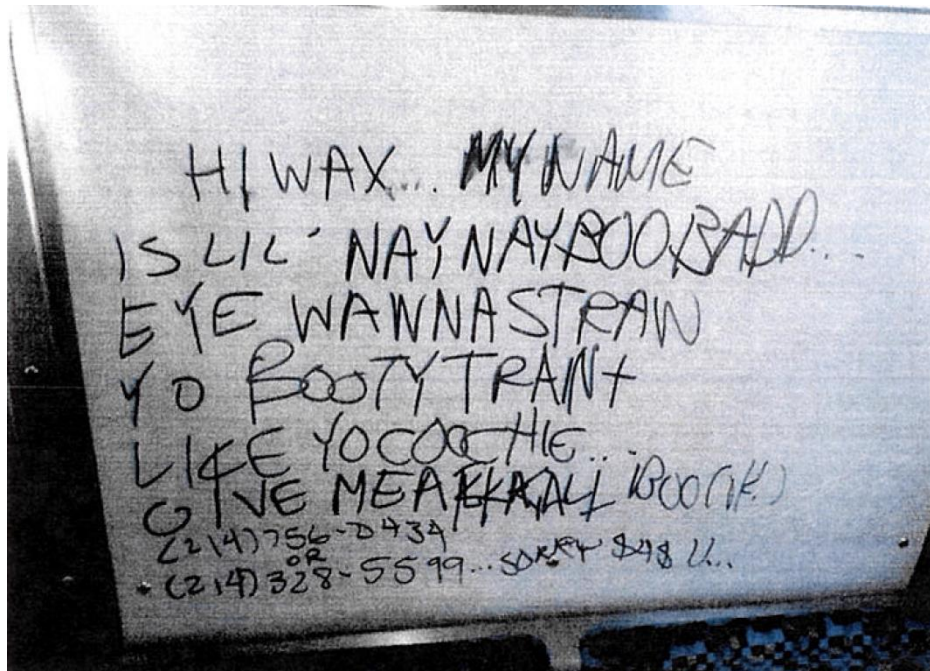 HI WAX... MY NAME
IS LIL' NAYNAYBOOBADD...
EYE WAWNASTRAW
YO BOOTYTRANT
LIKE YOCOOCHIE...
GIVE MEA KALL BOO (1K.)
(214) 756-0434
OR
(214) 328-5599... SORRY U...